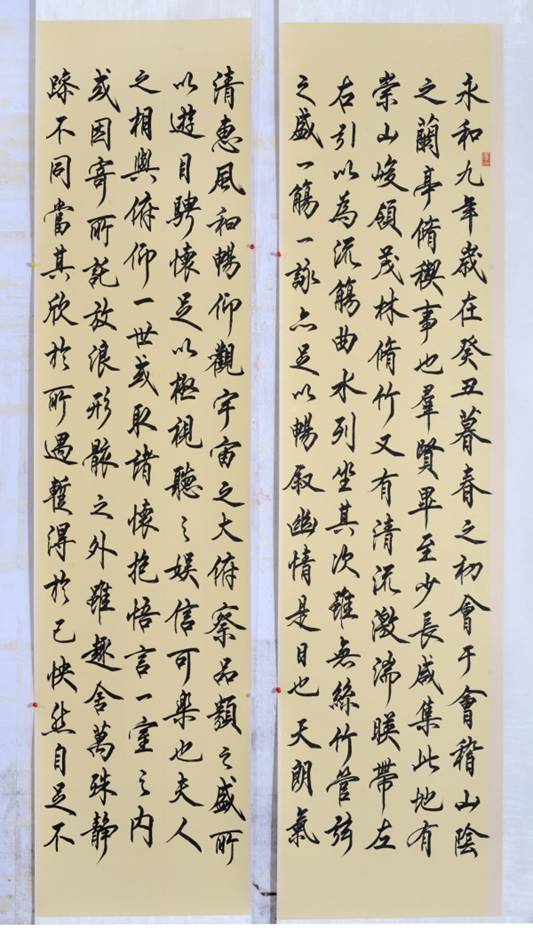 永和九年歲在癸丑暮春之初會于會稽山陰
之蘭亭脩稧事也羣賢畢至少長咸集此地有
崇山峻領茂林脩竹又有清流激湍暎帶左
右引以為流觴曲水列坐其次雖無絲竹管弦
之盛一觴一詠亦足以暢叙幽情是日也天朗氣
清惠風和暢仰觀宇宙之大俯察品類之盛所
以遊目騁懷足以極視聽之娛信可樂也夫人
之相與俯仰一世或取諸懷抱悟言一室之內
或因寄所託放浪形骸之外雖趣舍萬殊靜
躁不同當其欣於所遇暫得於己快然自足不